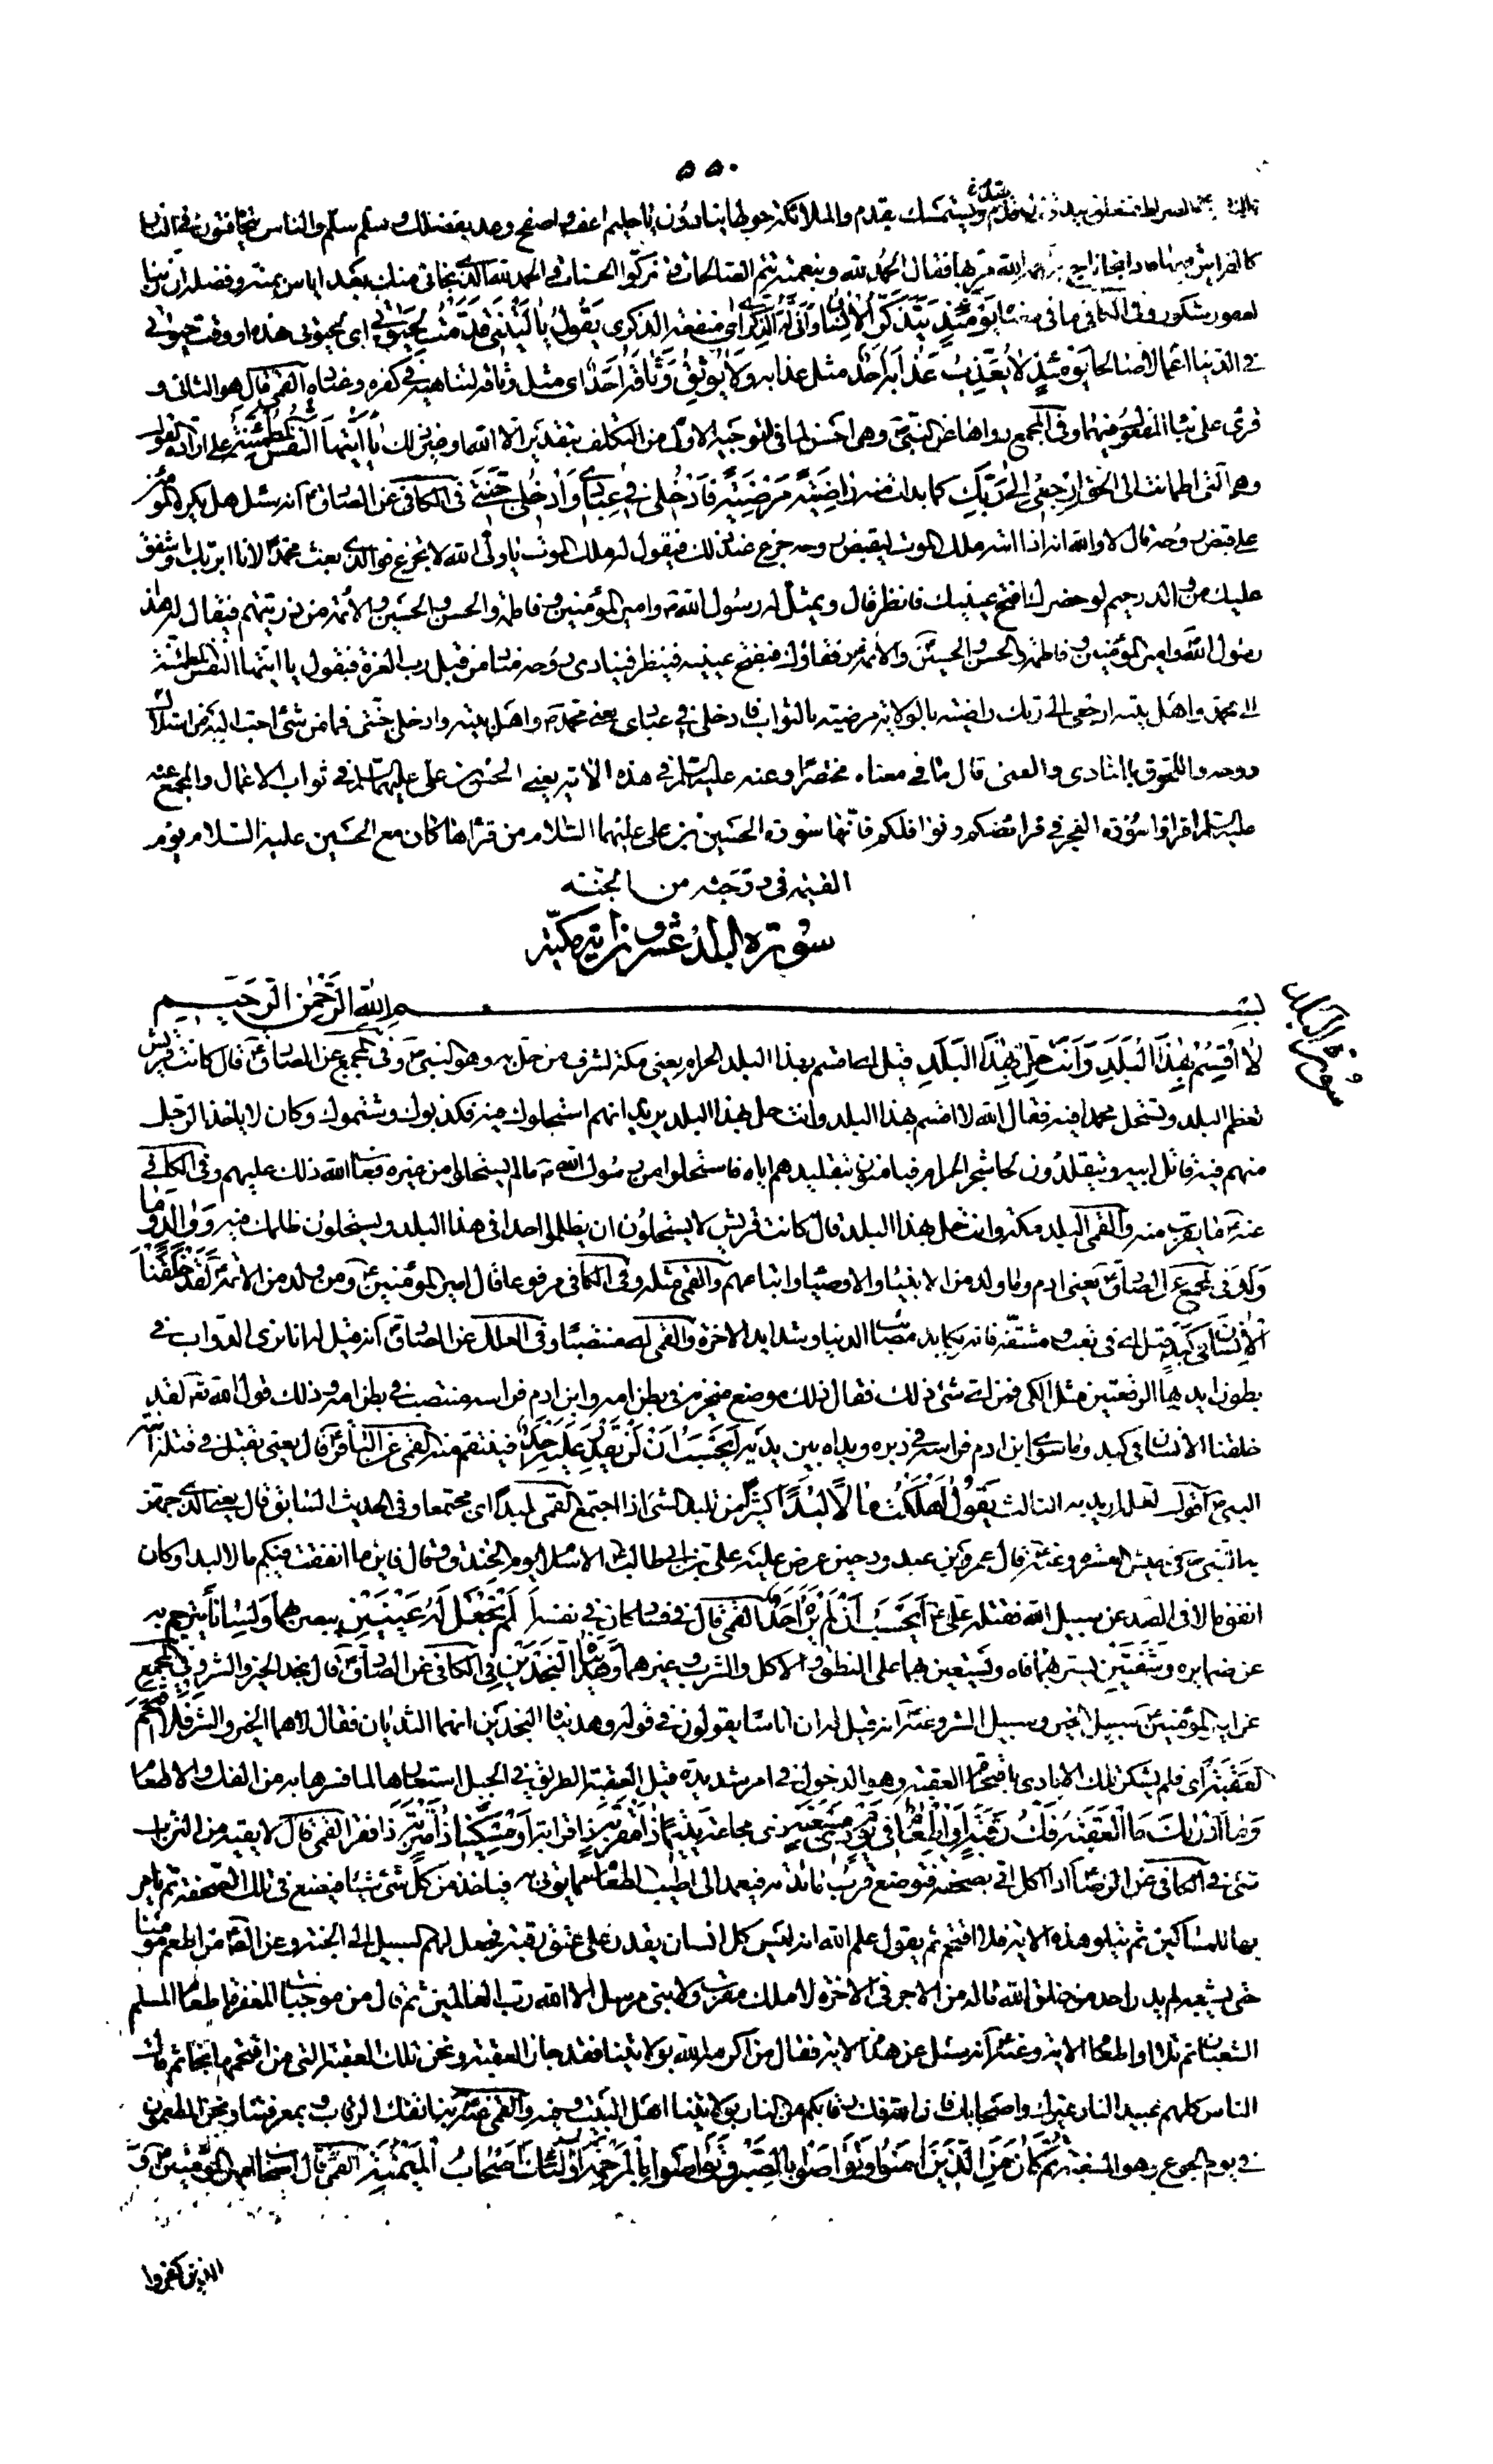 ٥٥٠
على الصراط فمتعلق بيد وتزل قدم ويستمسك بقدم والملائكة حولها ينادون يا حليم اعف واصفح وعد بفضلك وسلم سلم والناس يتهافتون في النار
كالفراش فيها فاذا نجا ناج برحمة الله مر بها فقال الحمد لله وبنعمته تتم الصالحات وتزكوا الحسنات والحمد لله الذي نجاني منك بعد اياس بمنه وفضله ان ربنا
لغفور شكور وفي الكافي ما في معناه يومئذ يتذكر الانسان وانى له الذكرى اي منفعة الذكرى يقول يا ليتني قدمت لحيوتي اي لحيوتي هذه او وقت حيوتي
في الدنيا اعمالا صالحا فيومئذ لا يعذب عذابه احد مثل عذابه ولا يوثق وثاقه احد اي مثل وثاقه لتناهيه في كفره وعناده القمي قال هو الثاني و
قرئ على بناء المفعول فيهما وفي المجمع رواها عن النبي ص وهي احسن لما في التوجيه الاول من التكلف بتقدير الا الله او ضير ذلك يا ايتها النفس المطمئنة على ارادة القول
وهي التي اطمأنت الى الحق ارجعي الى ربك كما بدأت منه راضية مرضية فادخلي في عبادي وادخلي جنتي في الكافي عن الصادق ع انه سئل هل يكره المؤمن
على قبض روحه قال لا والله انه اذا اتاه ملك الموت ليقبض روحه جزع عند ذلك فيقول له ملك الموت يا ولي الله لا تجزع فوالذي بعث محمدا لانا ابر بك واشفق
عليك من والد رحيم لو حضرك افتح عينيك فانظر قال ويمثل له رسول الله ص وامير المؤمنين وفاطمة والحسن والحسين والائمة من ذريتهم فيقال له هذا
رسول الله وامير المؤمنين وفاطمة والحسن والحسين والائمة رفقاؤك فيفتح عينيه فينظر فينادي روحه مناد من قبل رب العزة فيقول يا ايتها النفس المطمئنة
الى محمد واهل بيته ارجعي الى ربك راضية بالولاية مرضية بالثواب فادخلي في عبادي يعني محمد ص واهل بيته وادخلي جنتي فما من شئ احب اليه من استلال
روحه واللحوق بالمنادي والقمي قال ما في معناه مختصرا وعنه عليه السلم في هذه الاية يعني الحسين بن علي عليهما السلم في ثواب الاعمال والمجمع عنه
عليه السلم اقرؤا سورة الفجر في فرائضكم ونوافلكم فانها سورة الحسين بن علي عليهما السلام من قرأها كان مع الحسين عليه السلام يوم
القيمة في درجته من الجنة
سورة البلد عشرون اية مكية
بسم الله الرحمن الرحيم
سورة البلد
لا اقسم بهذا البلد وانت حل بهذا البلد قيل اي اقسم بهذا البلد الحرام يعني مكة لشرف من حل به وهو النبي ص وفي المجمع عن الصادق ع قال كانت قريش
تعظم البلد وتستحل محمدا فيه فقال الله لا اقسم بهذا البلد وانت حل بهذا البلد يريد انهم استحلوك فيه فكذبوك وشتموك وكان لا ياخذ الرجل
منهم فيه قاتل ابيه ويتقلدون لحاء شجر الحرام فيامنون بتقليدهم اياه فاستحلوا من رسول الله ص ما لم يستحلوا من غيره فعاب الله ذلك عليهم وفي الكافي
عنه ع ما يقرب منه والقمي البلد مكة وانت حل بهذا البلد قال كانت قريش لا يستحلون ان يظلموا احدا في هذا البلد ويستحلون ظلمك فيه ووالد وما
ولد في المجمع عن الصادق ع يعني ادم وما ولد من الانبياء والاوصياء واتباعهم والقمي مثله وفي الكافي مرفوعا قال امير المؤمنين ع ومن ولد من الائمة ع لقد خلقنا
الانسان في كبد قيل اي في تعب ومشقة فانه يكابد مصائب الدنيا وشدايد الاخرة والقمي اي منتصبا وفي العلل عن الصادق ع انه قيل له انا نرى الدواب في
بطون ايديها الرقعتين مثل الكي فمن اي شئ ذلك فقال ذلك موضع منخريه في بطن امه وابن ادم راسه منتصب في بطن امه وذلك قول الله تع لقد
خلقنا الانسان في كبد وما سوى ابن ادم فراسه في دبره ويداه بين يديه ايحسب ان لن يقدر عليه احد فينتقم منه القمي عن الباقر ع قال يعني يقتل في قتله ابنة
النبي ص اقول لعله اريد به الثالث يقول اهلكت مالا لبدا كثيرا من تلبد الشئ اذا اجتمع القمي لبدا اي مجتمعا وفي الحديث السابق قال يعني الذي جهز
به النبي ص في جيش العسرة وعنه ع قال عمرو بن عبد ود حين عرض عليه علي بن ابي طالب ع الاسلام يوم الخندق وقال فاين ما انفقت فيكم مالا لبدا وكان
انفق مالا في الصد عن سبيل الله فقتله علي ع ايحسب ان لم يره احد القمي قال في فساد كان في نفسه الم نجعل له عينين يبصر بهما ولسانا يترجم به
عن ضمايره وشفتين يستر بهما فاه ويستعين بهما على النطق والاكل والشرب وغيرهما وهديناه النجدين في الكافي عن الصادق ع قال نجد الخير والشر وفي المجمع
عن امير المؤمنين ع سبيل الخير وسبيل الشر وعنه ع انه قيل له ان اناسا يقولون في قوله وهديناه النجدين انهما الثديان فقال لا هما الخير والشر فلا اقتحم
العقبة اي فلم يشكر تلك الايادي باقتحام العقبة وهو الدخول في امر شديد قيل العقبة الطريق في الجبل استعارها لما فسرها به من الفك والاطعام
وما ادريك ما العقبة فك رقبة او اطعام في يوم ذي مسغبة ذي مجاعة يتيما ذا مقربة ذا قرابة او مسكينا ذا متربة ذا فقر القمي قال لا يقيه من التراب
شئ في الكافي عن الرضا ع اذا اكل اتي بصحفة فتوضع قرب مائدته فيعمد الى اطيب الطعام مما يؤتى به فياخذ من كل شئ شيئا فيضع في تلك الصحفة ثم يامر
بها للمساكين ثم يتلو هذه الاية فلا اقتحم ثم يقول علم الله انه ليس كل انسان يقدر على عتق رقبة فجعل لهم السبيل الى الجنة وعن الصادق من اطعم مؤمنا
حتى يشبعه لم يدر احد من خلق الله ما له من الاجر في الاخرة لا ملك مقرب ولا نبي مرسل الا الله رب العالمين ثم قال من موجبات المغفرة اطعام المسلم
السغبان ثم تلا او اطعام الاية وعنه ع انه سئل عن هذه الاية فقال من اكرمه الله بولايتنا فقد جاز العقبة ونحن تلك العقبة التي من اقتحمها نجا ثم قال
الناس كلهم عبيد النار غيرك واصحابك فان الله فك رقابكم من النار بولايتنا اهل البيت وفيه والقمي عنه ع بنا تفك الرقاب وبمعرفتنا ونحن المطعمون
في يوم الجوع وهو المسغبة ثم كان من الذين امنوا وتواصوا بالصبر وتواصوا بالمرحمة اولئك اصحاب الميمنة القمي قال اصحاب امير المؤمنين ع و
الذين كفروا